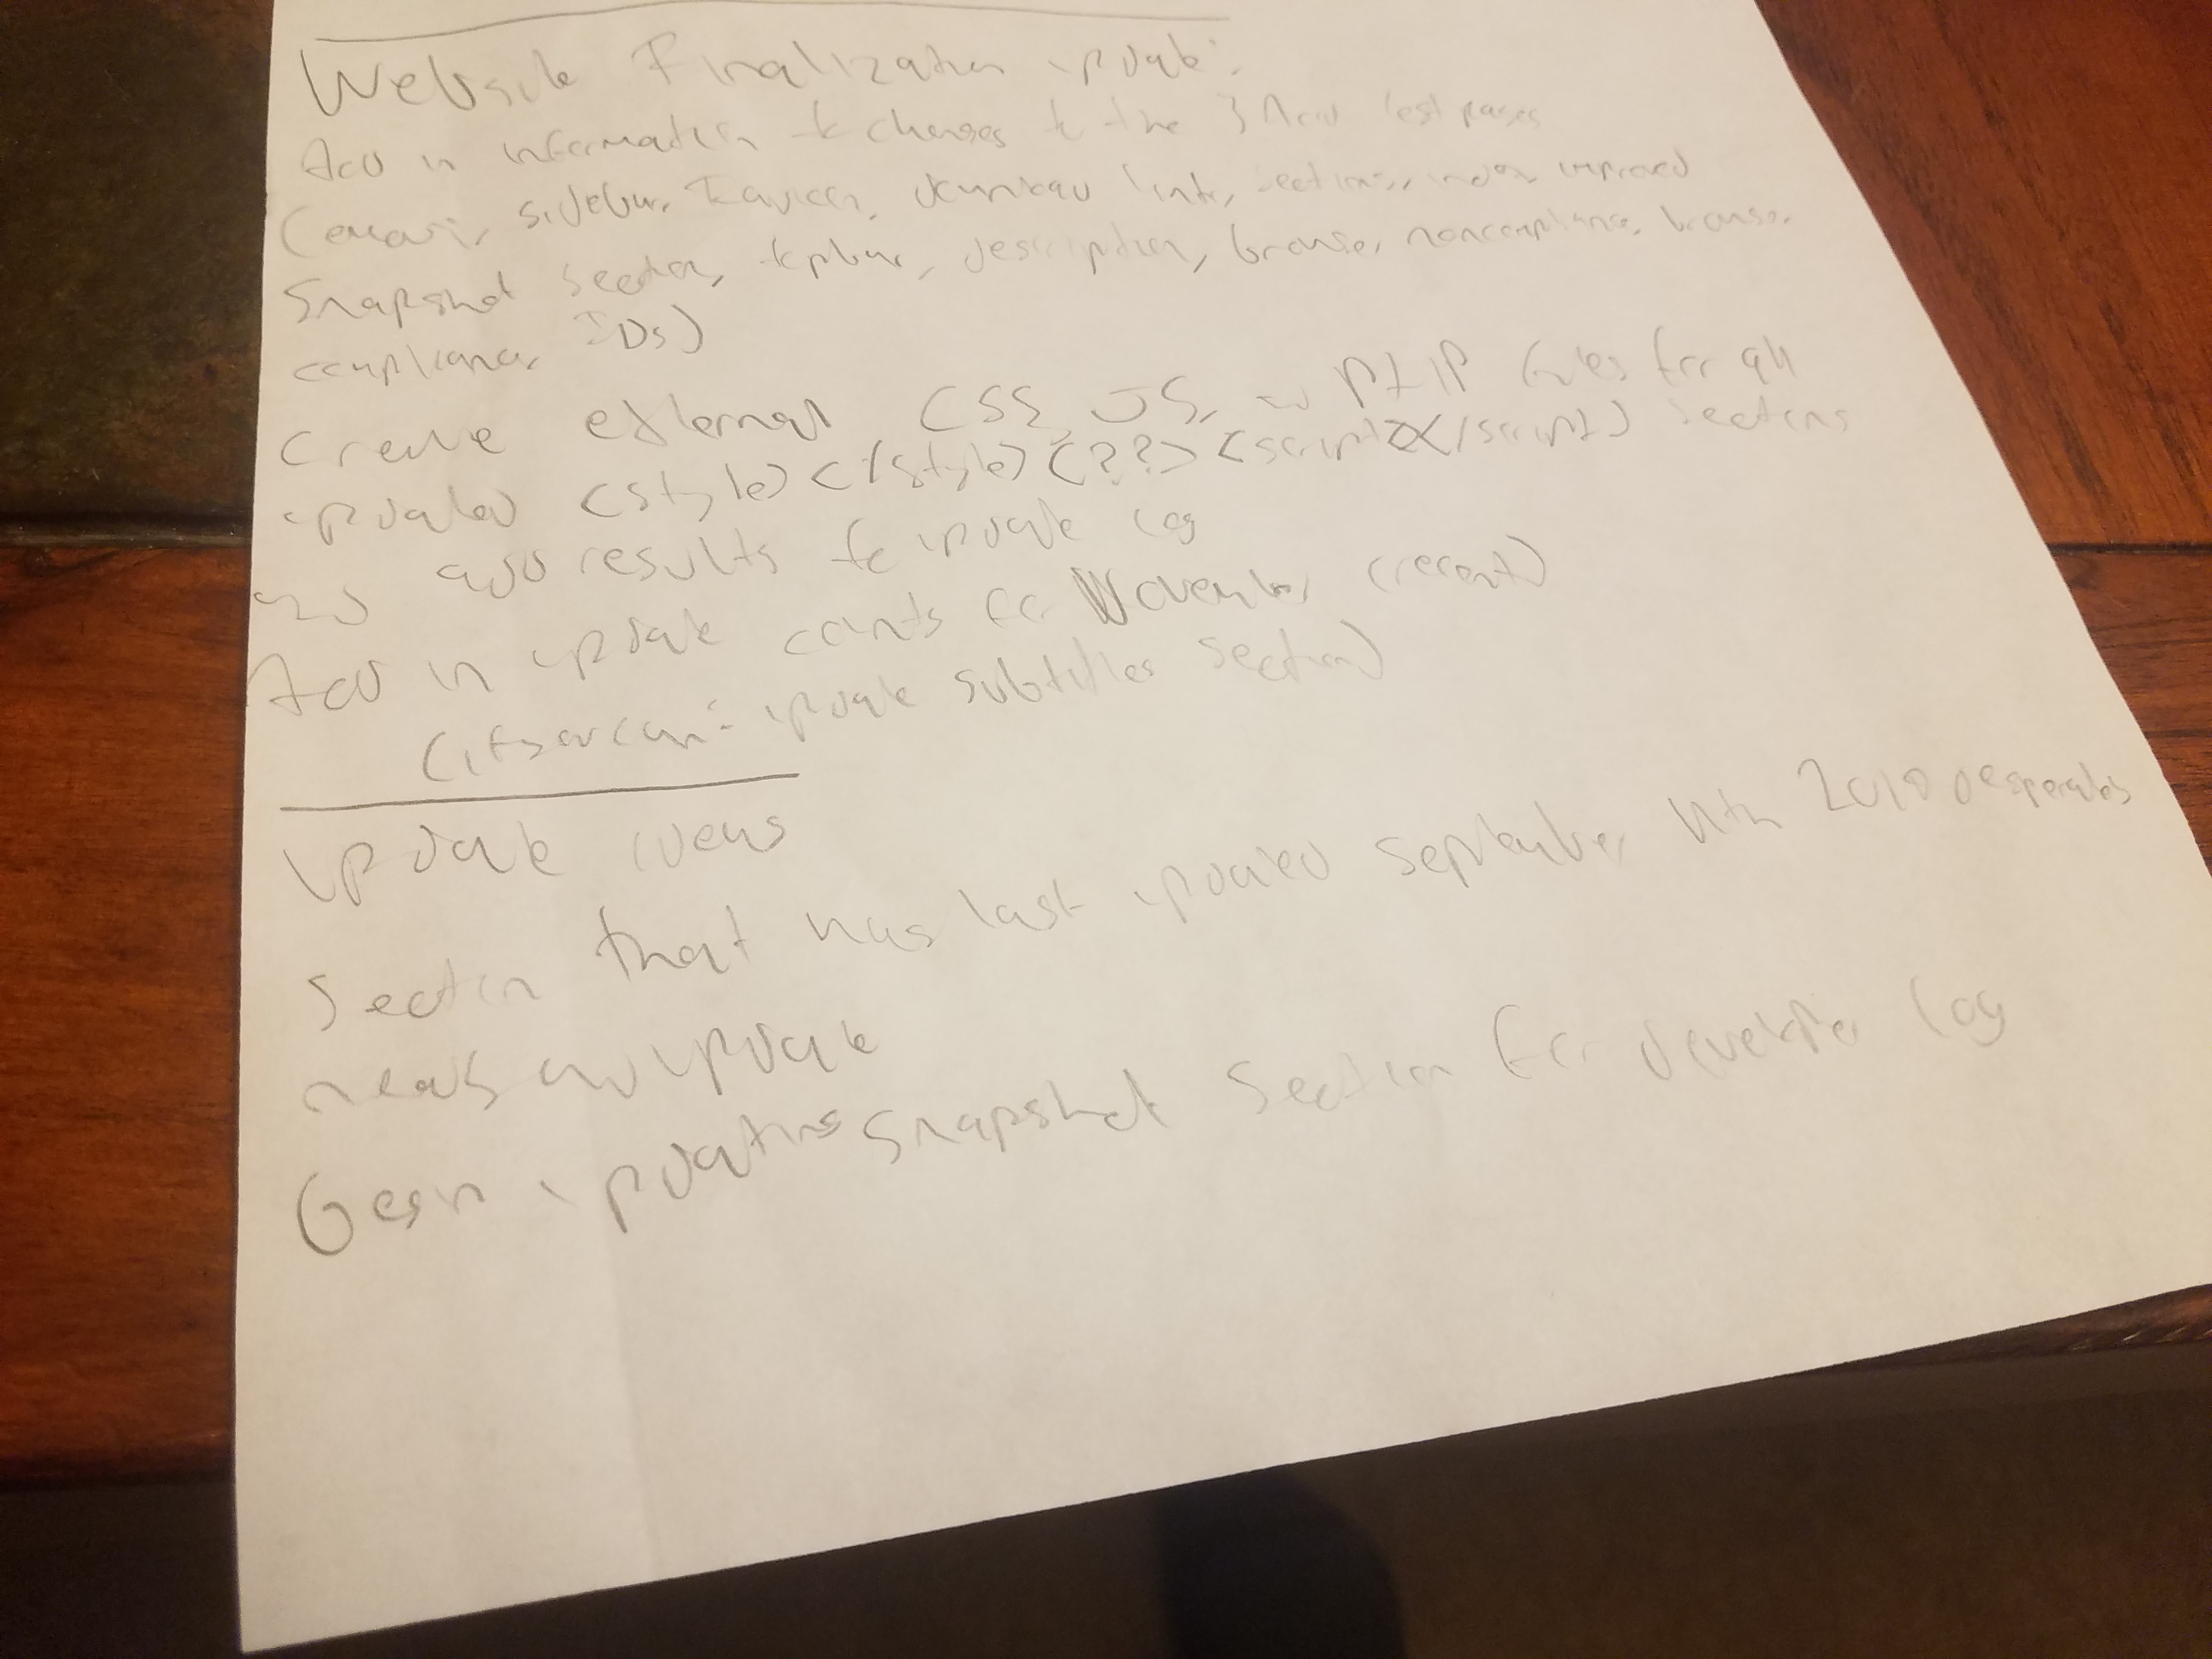 Website Finalization update:
Add in information to changes to the 3 Acid test pages
sidebar, Favicon, download links, sections, index improved
Snapshot section, topbar, description, browser noncompliance, browser
compliance, IDs)
Create external CSS, JS, and PHP files for all
updated <style></style> <??> <script></script> sections
and add results to update log
Add in update counts for November (recent)
update subtitles section)
Update ideas
Section that was last updated September 11th 2019 desperately
needs an update
Begin updating snapshot section for developer log